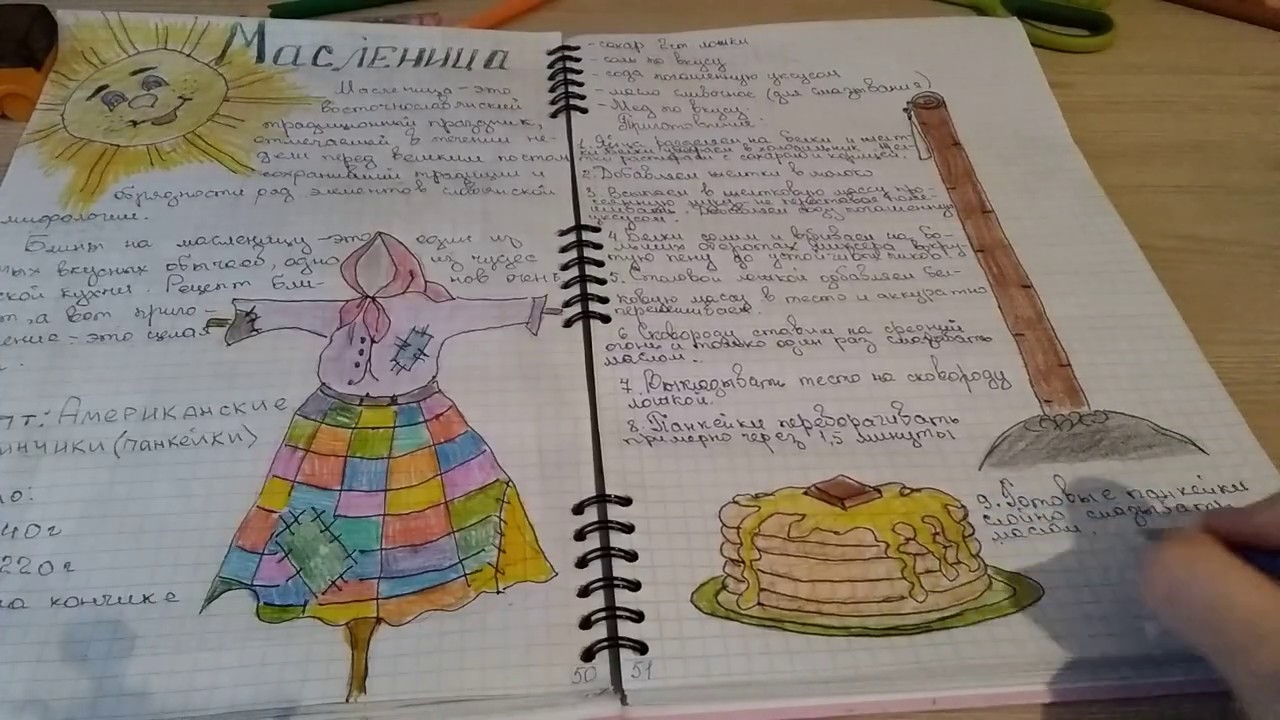 Масленица
Масленица - это
восточнославянский
традиционный праздник,
отмечаемый в течении не-
дели перед великим постом
сохранивший традиции и
обрядности ряд элементов славянской
мифологии.
Блины на масленицу - это один из
ных вкусных обычаев, одно из чудес
ской кухни. Рецепт бли- нов очень
т, а вот приго-
ение - это целая
пт: Американские
инчики (панкейки)
но:
40г
220г
на кончике
50
- сахар 2 ст ложки
- соль по вкусу
- сода погашенную уксусом
- масло сливочное (для смазывания)
- Мед по вкусу.
Приготовление:
1. Яйца разделяем на белки и желт
ки белки убираем в холодильник. Жел
тки растираем с сахаром и корицей.
2. Добавляем желтки в молоко
3. Всыпаем в желтковую массу про-
сеянную муку не переставая поме-
шивать. Добавляем соду погашенную
уксусом.
4. Белки солим и взбиваем на бо-
льших оборотах миксера в кру-
тую пену до устойчивых пиков
5. Столовой ложкой добавляем бел-
ковую массу в тесто и аккуратно
перемешиваем.
6. Сковороду ставим на средний
огонь и только один раз смазывать
маслом.
7. Выкладывать тесто на сковороду
ложкой.
8. Панкейки переворачивать
примерно через 1,5 минуты
9. Готовые панкейки
слойно смазывать
маслом.
51